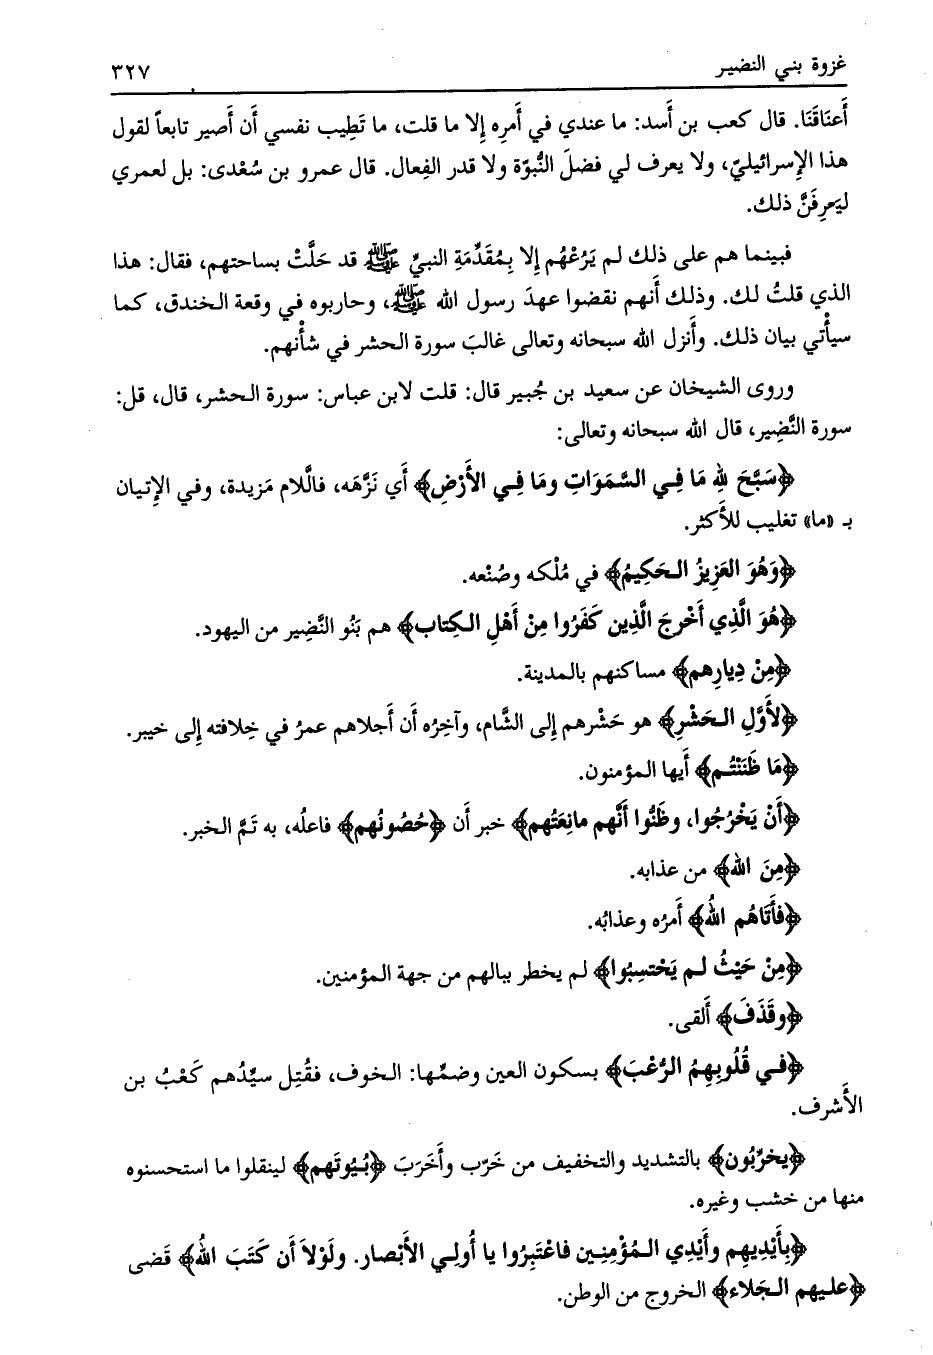 غزوة بني النضير ٣٢٧
أَعنَاقَنَا. قال كعب بن أَسد: ما عندي في أَمره إلا ما قلت، ما تَطِيب نفسي أَن أَصير تابعاً لقول
هذا الإِسرائيليّ، ولا يعرف لي فضلَ النُّبوّة ولا قدر الفِعال. قال عمرو بن سُعْدى: بل لعمري
ليَعرِفَنَّ ذلك.
فبينما هم على ذلك لم يَرُعْهُم إِلا بِمُقَدِّمَةِ النبيِّ ﷺ قد حَلَّتْ بساحتهم، فقال: هذا
الذي قلتُ لك. وذلك أَنهم نقضوا عهدَ رسول الله ﷺ، وحاربوه في وقعة الخندق، كما
سيأْتي بيان ذلك. وأَنزل الله سبحانه وتعالى غالبَ سورة الحشر في شأْنهم.
وروى الشيخان عن سعيد بن جُبير قال: قلت لابن عباس: سورة الحشر، قال، قل:
سورة النَّضِير، قال الله سبحانه وتعالى:
﴿سَبَّحَ لِلهِ مَا فِي السَّمَوَاتِ ومَا فِي الأَرْضِ﴾ أَي نَزَّهَه، فاللَّام مَزيدة، وفي الإِتيان
بـ «ما» تغليب للأَكثر.
﴿وَهُوَ العَزِيزُ الحَكِيمُ﴾ في مُلْكه وصُنْعه.
﴿هُوَ الَّذِي أَخْرجَ الَّذِين كَفَرُوا مِنْ أَهْلِ الكِتاب﴾ هم بَنُو النَّضِير من اليهود.
﴿مِنْ دِيارِهم﴾ مساكنهم بالمدينة.
﴿لأَوَّلِ الحَشْرِ﴾ هو حَشْرهم إِلى الشَّام، وآخِرُه أَن أَجلاهم عمرُ في خِلافته إِلى خيبر.
﴿مَا ظَنَنْتُم﴾ أَيها المؤمنون.
﴿أَنْ يَخْرُجُوا، وظَنُّوا أَنَّهم مانِعَتُهم﴾ خبر أَن ﴿حُصُونُهم﴾ فاعلُه، به تَمَّ الخبر.
﴿مِنَ الله﴾ من عذابه.
﴿فأَتَاهُم اللهُ﴾ أَمرُه وعذابُه.
﴿مِنْ حَيْثُ لم يَحْتسِبُوا﴾ لم يخطر ببالهم من جهة المؤمنين.
﴿وقَذَفَ﴾ أَلقى.
﴿في قُلُوبِهِمُ الرُّعْبَ﴾ بسكون العين وضمِّها: الخوف، فقُتِل سيِّدُهم كَعْبُ بن
الأَشرف.
﴿يخرِّبُون﴾ بالتشديد والتخفيف من خَرَّب وأَخَرَبَ ﴿بُيُوتَهم﴾ لينقلوا ما استحسنوه
منها من خشب وغيره.
﴿بِأَيْدِيهِم وأَيْدِي المُؤْمِنِين فاعْتَبِرُوا يا أُولِي الأَبْصار. ولَوْلاَ أن كَتَبَ اللهُ﴾ قَضى
﴿عليهم الجَلاء﴾ الخروج من الوطن.